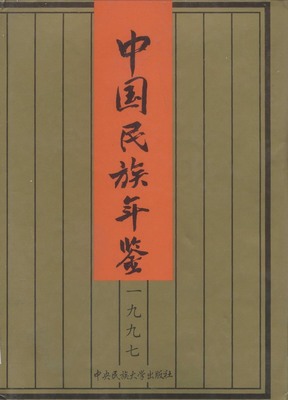 中国民族年鉴
一九九七
中央民族大学出版社